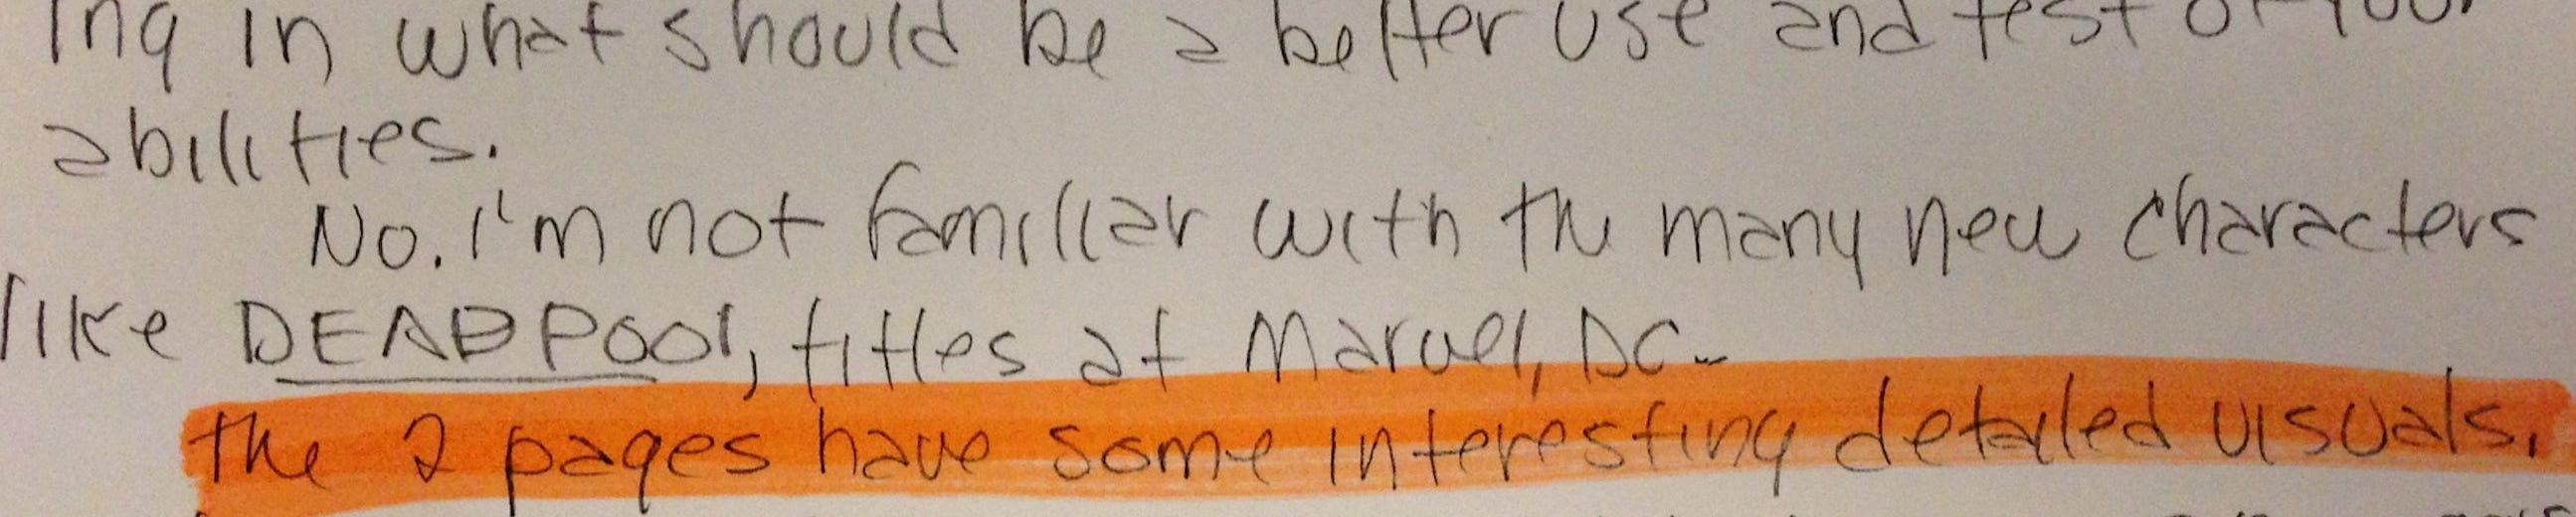 ing in what should be a better use and test of your
abilities.
No. I'm not familiar with the many new characters
like DEADPOOl, titles at Marvel, DC--
the 2 pages have some interesting detailed visuals.